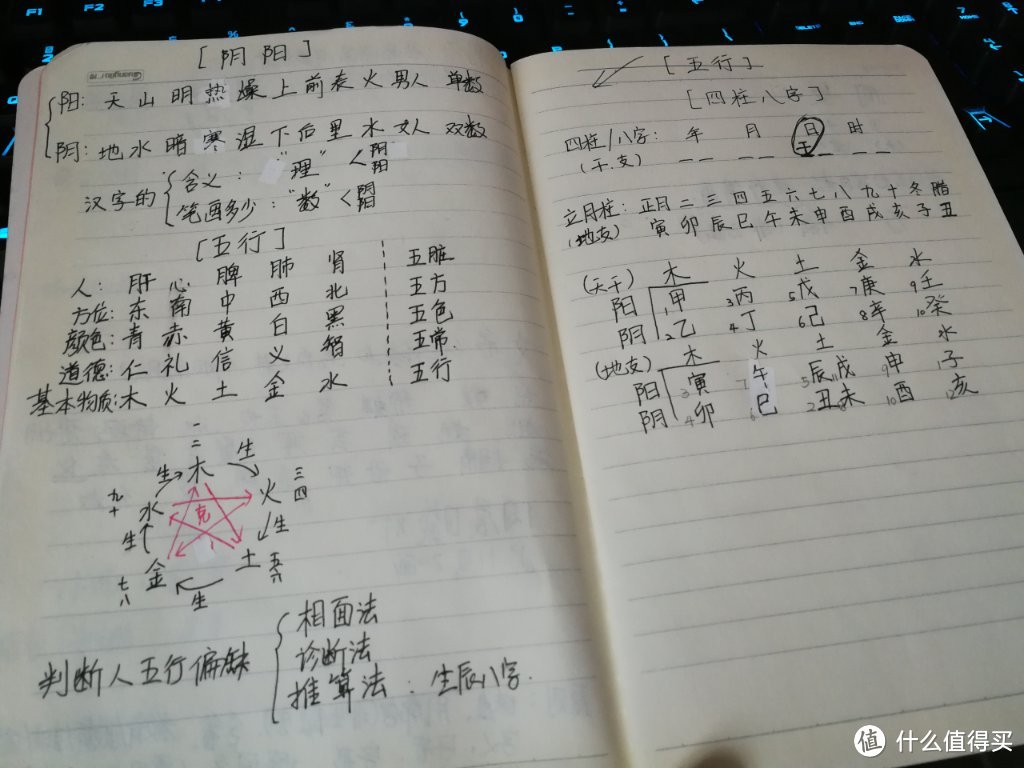 [阴阳]
Guangbo
阳: 天 山 明 热 燥 上 前 表 火 男人 单数
阴: 地 水 暗 寒 湿 下 后 里 水 女人 双数
汉字的
含义: "理" < 阴 阳
笔画多少: "数" < 阴 阳
[五行]
人: 肝 心 脾 肺 肾 五脏
方位: 东 南 中 西 北 五方
颜色: 青 赤 黄 白 黑 五色
道德: 仁 礼 信 义 智 五常.
基本物质: 木 火 土 金 水 五行
一二
木
生
生
火
三四
九十
水
克
生
生
土
五六
金
七八
生
判断人五行偏缺
相面法
诊断法
推算法: 生辰八字.
[五行]
[四柱八字]
四柱/八字: 年 月 日 时
(干.支) — — — — 主 — — —
立月柱: 正月 二 三 四 五 六 七 八 九 十 冬 腊
(地支) 寅 卯 辰 巳 午 未 申 酉 戌 亥 子 丑
(天干) 木 火 土 金 水
阳 1甲 3丙 5戊 7庚 9壬
阴 2乙 4丁 6己 8辛 10癸
(地支) 木 火 土 金 水
阳 3寅 7午 5辰 11戌 9申 1子
阴 4卯 6巳 2丑 8未 10酉 12亥
值 什么值得买